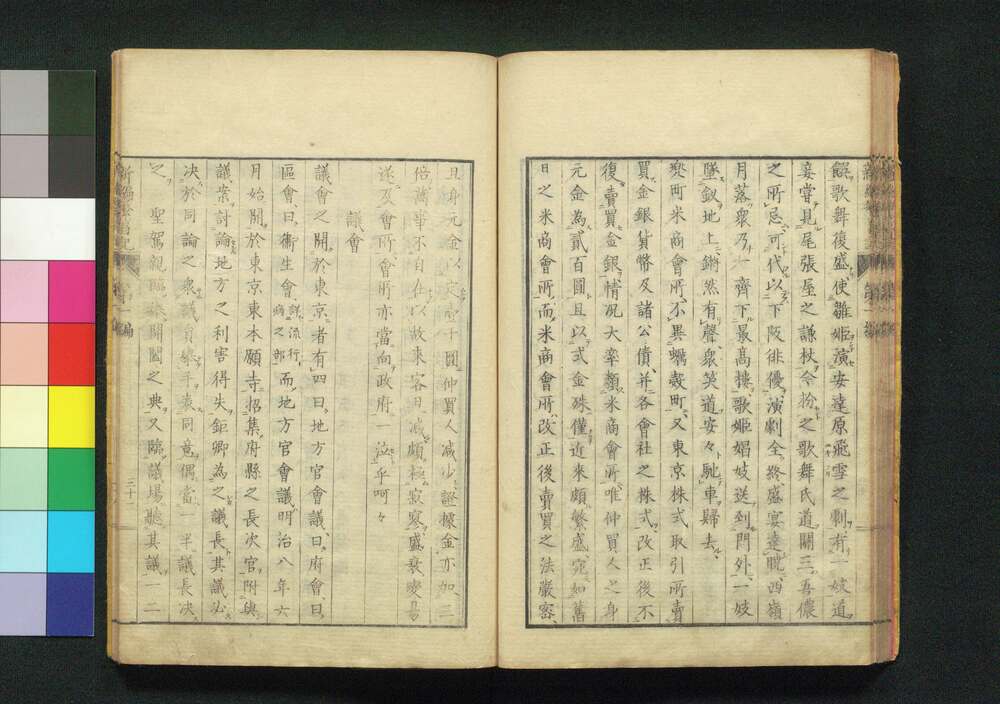 饌歌舞復盛使雛姫演安達原飛雪之劇有一妓道
妾嘗見尾張屋之謙杖今扮之歌舞氏道關三吾儂
之所忌可代以下阪俳優演劇全終盛宴達曉西嶺
月落衆乃一齊下最高樓歌姫娼妓送到門外一妓
墜釵地上鏘然有聲衆笑道安々馳車歸去
兜町米商會所不異蠣殻町又東京株式取引所賣
買金銀貨幣及諸公債并各會社之株式改正後不
復賣買金銀情况大率類米商會所唯仲買人之身
元金為貳百圓且以式金殊僅近來頗繁盛宛如舊
日之米商會所而米商會所改正後賣買之法嚴密
且身元金以定五十圓仲買人减少證據金亦加三
倍萬事不自在以故來客日减頗極寂寥盛衰變易
遂及會所會所亦當向政府一泣乎呵々
議會
議會之開於東京者有四曰地方官會議曰府會曰
區會曰衛生會議流行病之部而地方官會議明治八年六
月始開於東京東本願寺招集府縣之長次官附與
議案討論地方之利害得失鉅卿為之議長其議必
决於同論之衆議員樂手表同意偶當一半議長决
之 聖駕親臨擧開園之典又臨議場聽其議一二
新編 初編
三十